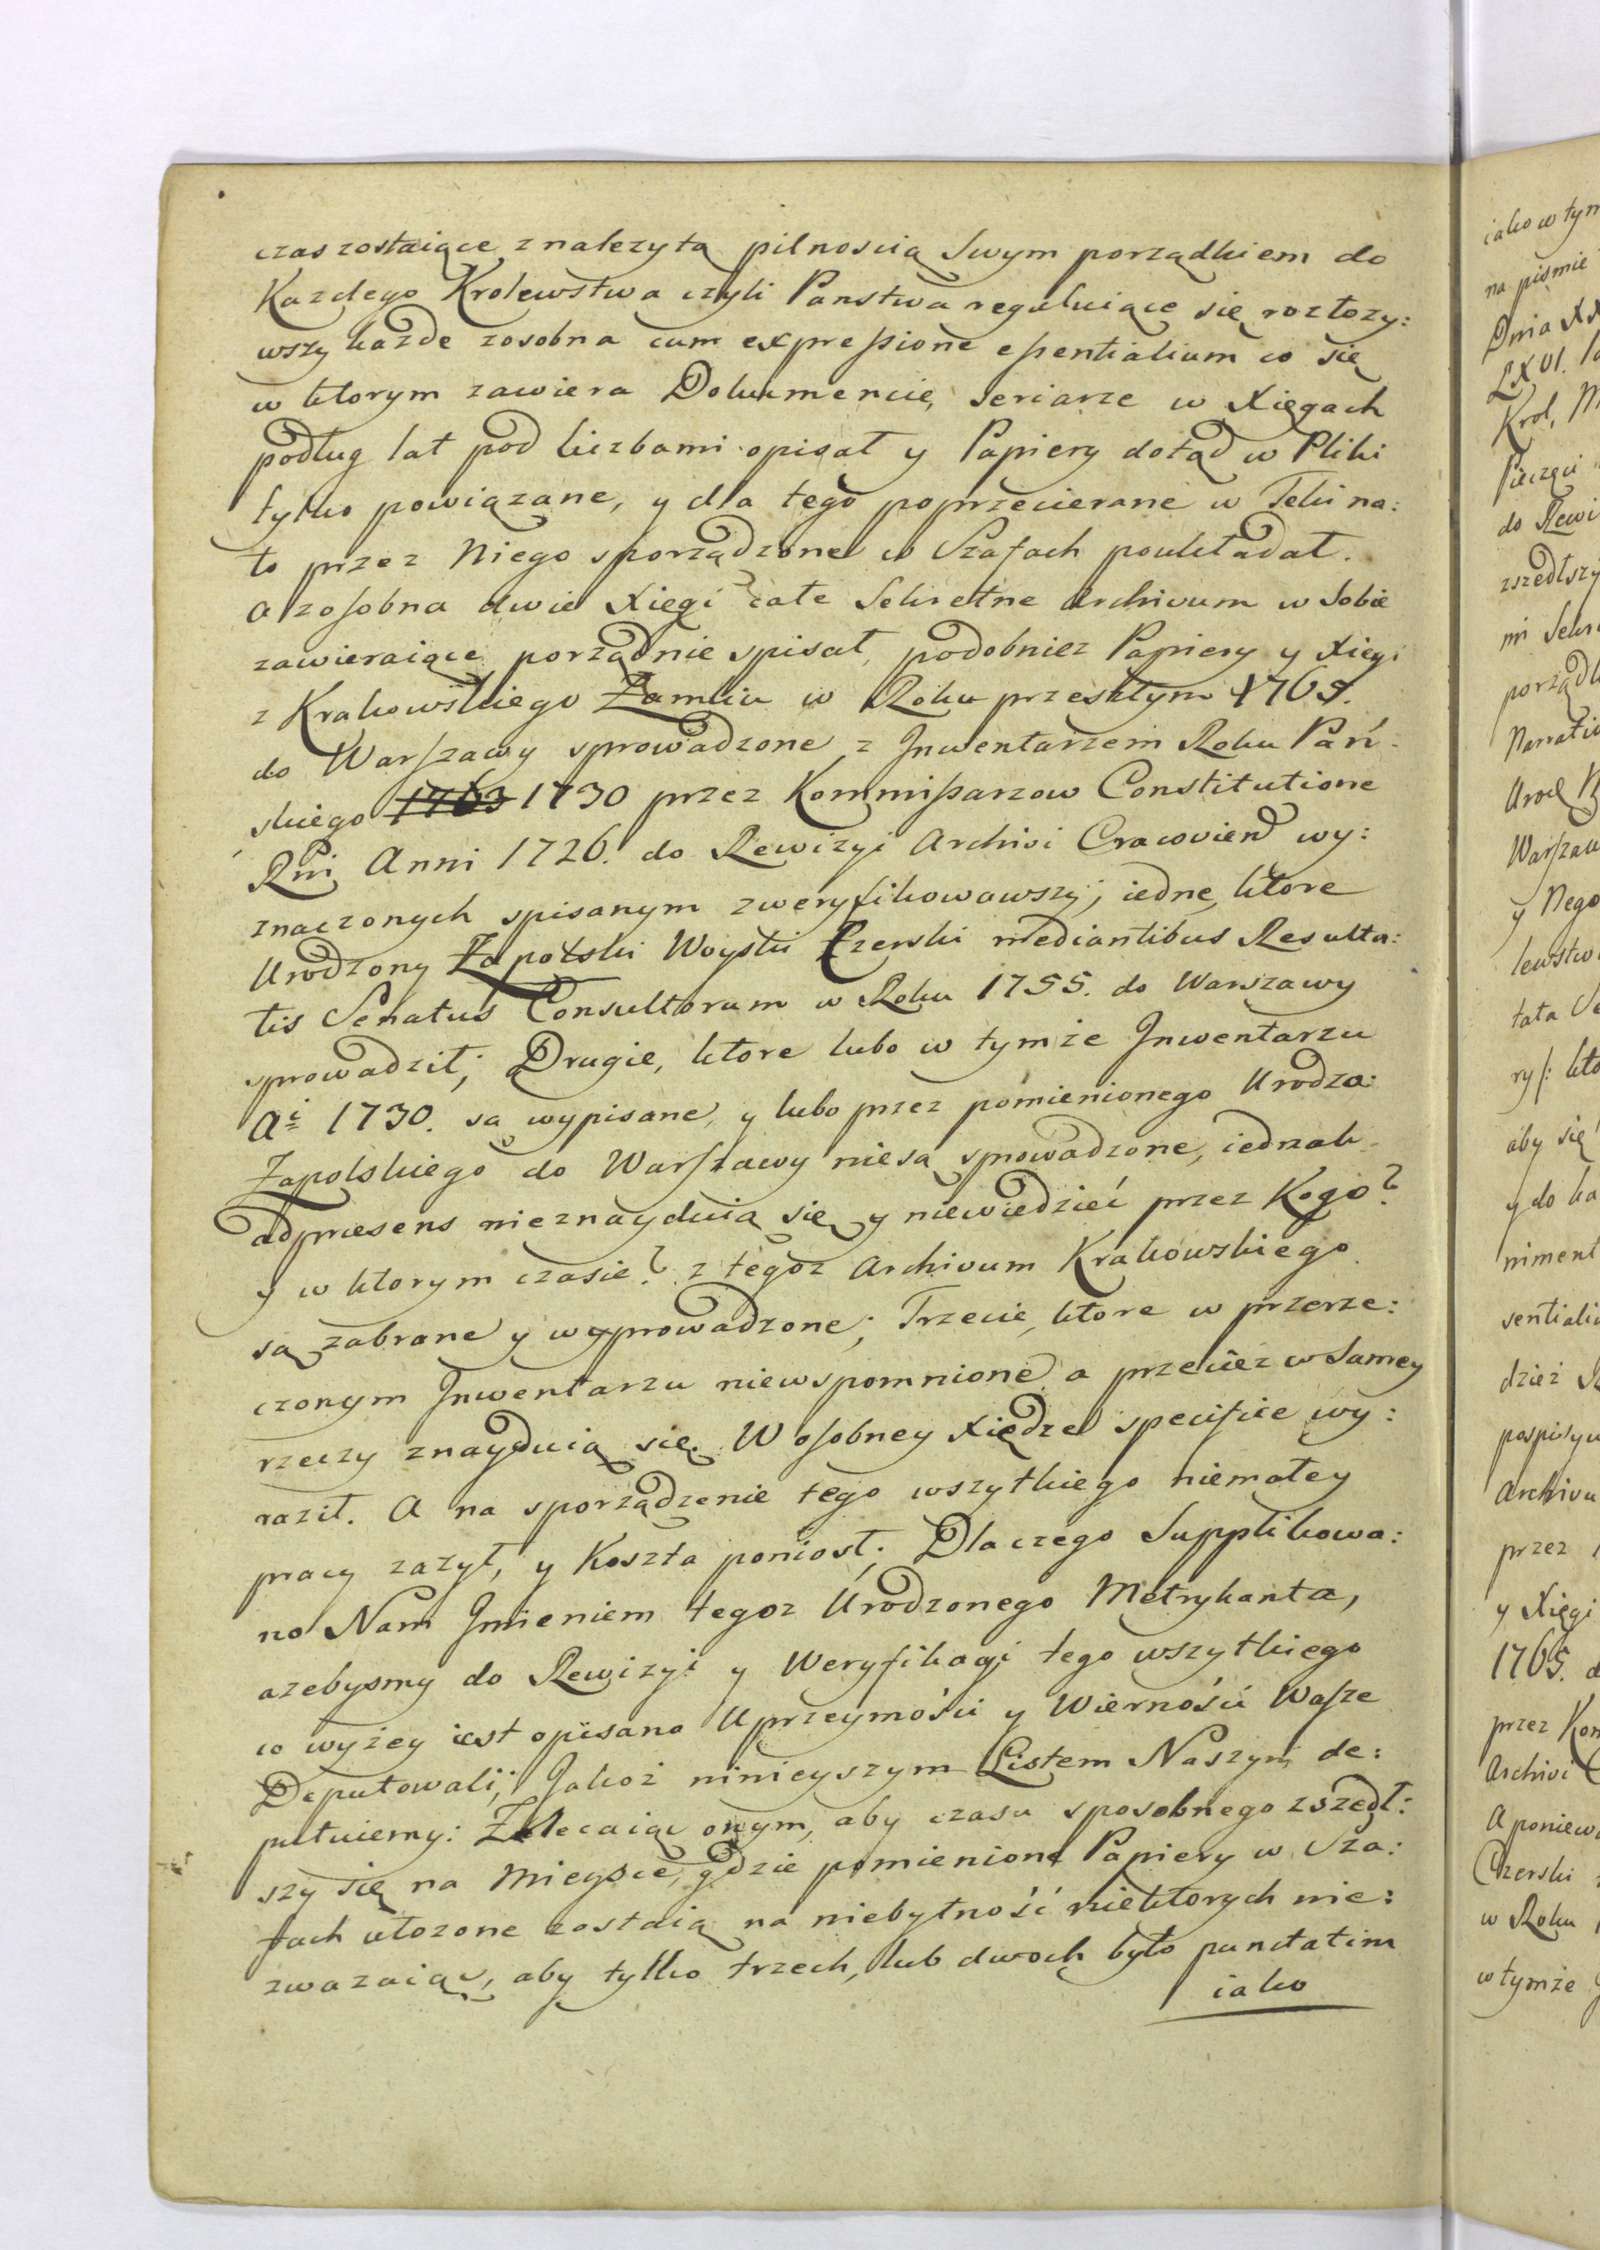 czas zostaiące z nalezytą pilnoscią Swym porządkiem do
Kazdego Krolewstwa czyli Panstwa reguluiące się rozłozy:
wszy każde zosobna cum expressione essentialium co się
w ktorym zawiera Dokumencie, seriarze w Xięgach
podług lat pod liczbami opisał y Papiery dotąd w Pliki
tylko powiązane, y dla tego poprzecierane w Teki na:
to przez Niego sporządzone w Szafach poukładał.
a zosobna dwie Xięgi całe Sekretne Archivum w Sobie
zawieraiące porządnie spisał, podobniez Papiery y Xięgi
z Krakowskiego Zamku w Roku przeszłym 1765.
do Warszawy sprowadzone z Jnwentarzem Roku Pań:
skiego 1763 1730 przez Kommissarzow Constitutione
Rni Anni 1726. do Rewizyi Archivi Cracovien wy:
znaczonych spisanym zweryfikowawszy; iedne, ktore
Urodzony Zapolski Woyski Czerski mediantibus Resulta:
tis Senatus Consultorum w Roku 1755. do Warszawy
sprowadził; Drugie, ktore lubo w tymże Jnwentarzu
Ai 1730. są wypisane, y lubo przez pomienionego Urodzo:
Zapolskiego do Warszawy niesą sprowadzone, iednak
adpraesens nieznayduią się y niewiedzieć przez Kogo?
y w ktorym czasie? z tegoz Archivum Krakowskiego
są zabrane y wyprowadzone; Trzecie, ktore w przerze:
czonym Jnwentarzu niewspomnione a przeciez w Samey
rzeczy znayduią się. W osobney Xiędze specifice wy:
raził. A na sporządzenie tego wszytkiego niemałey
pracy zazył, y Koszta poniosł; Dlaczego Supplikowa:
no Nam Jmieniem tegoz Urodzonego Metrykanta,
azebysmy do Rewizyi y Weryfikacyi tego wszytkiego
co wyżey iest opisano Uprzeymości y Wierności Wasze
Deputowali; Jakoż ninieyszym Listem Naszym de:
putuiemy: Zalecaiąc onym, aby czasu sposobnego zszedł:
szy się na Mieysce, gdzie pomienione Papiery w Sza:
fach ułozone zostaią na niebytność niektorych nie:
zwazaiąc, aby tylko trzech, lub dwoch było punctatim
iako